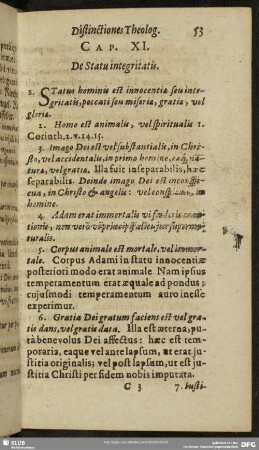 Distinctiones Theolog. 53
CAP. XI.
De Statu integritatis.
1. STatus hominis est innocentiæ seu inte-
gritatis, peccati seu miseriæ, gratiæ, vel
gloriæ.
2. Homo est animalis, vel spiritualis 1.
Corinth. 2. v. 14. 15.
3. Imago Dei est vel substantialis, in Chri-
sto, vel accidentalis, in primo homine, eaq; na-
turæ, vel gratiæ. Illa fuit inseparabilis, hæc
separabilis. Deinde imago Dei est inconspi-
cua, in Christo & angelis: vel conspicua, in
homine.
4. Adam erat immortalis vi fœderis
turalis.
5. Corpus animale est mortale, vel immor-
tale. Corpus Adami in statu innocentiæ
posteriori modo erat animale. Nam ipsius
temperamentum erat æquale ad pondus;
cujusmodi temperamentum auro inesse
experimur.
6. Gratia Dei gratum faciens est vel gra-
tis dans, vel gratis data. Illa est æterna, pu-
tà benevolus Dei affectus: hæc est tem-
poraria, eaque vel ante lapsum, ut erat ju-
stitia originalis; vel post lapsum, ut est ju-
stitia Christi per fidem nobis imputata.
C 3 7. Justi-
SLUB
DFG